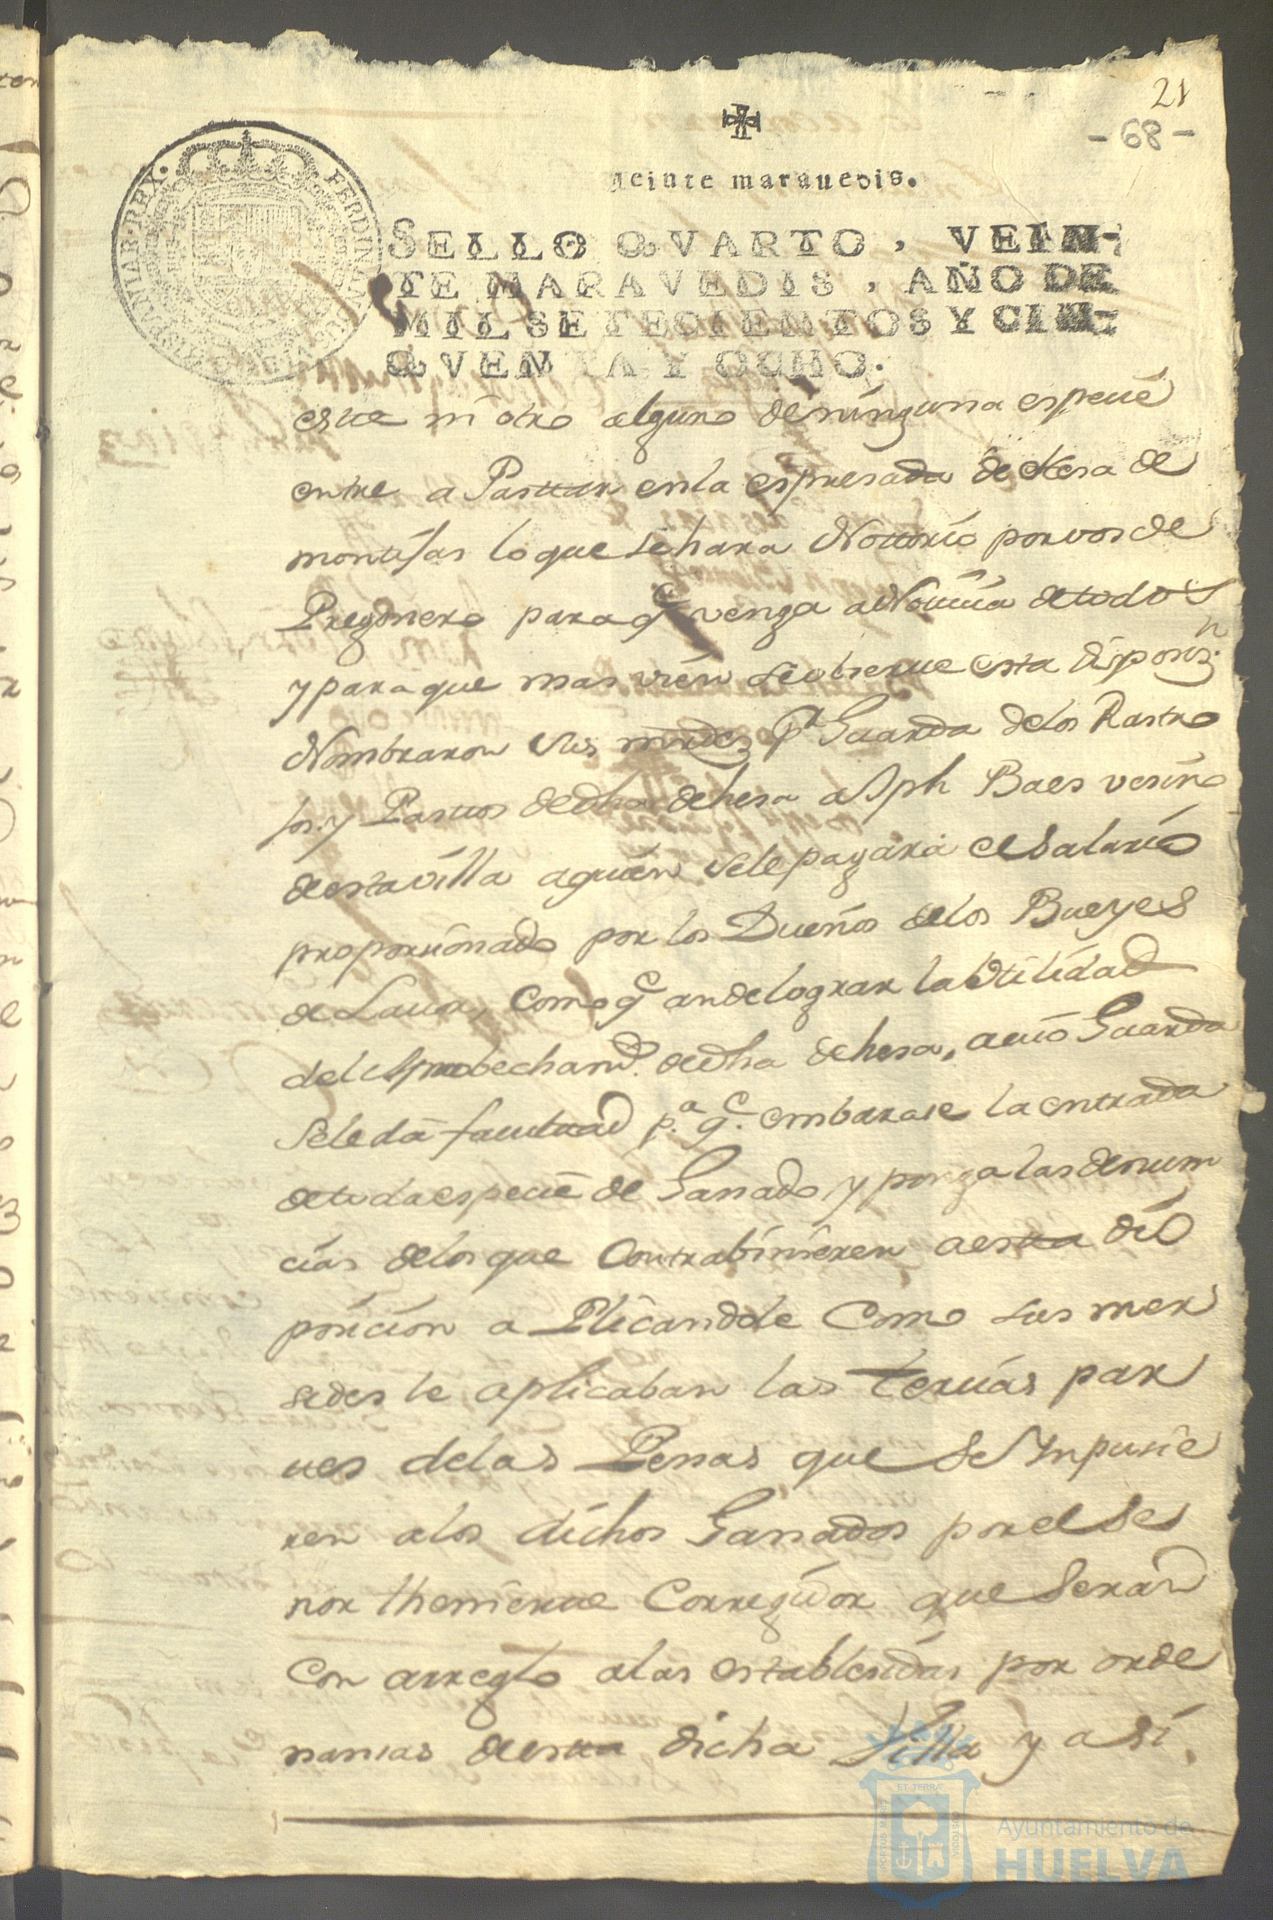 21
-68-
Veinte marauedis.
SELLO QVARTO, VEIN-
TE MARAVEDIS, AÑO DE
MIL SETECIENTOS Y CIN-
QVENTA Y OCHO.
HISPANIAR·REX· FERDIN
este ni otro alguno de ninguna especie
entre a Pastar en la espresada dehesa de
montijas lo que se hara Nottorio por vos de
Pregonero para q.e venga a Noticia de todos
y para que mas vien se obserue esta disposiz.n
Nombraron sus mrdes p.r Guarda de los Rastro
jos y Pastos de dha dehesa a Jph Baes vesino
de esta villa a quien se le pagara el Salario
proporsionado por los Dueños de los Bueyes
de Lauor, como q.e an de lograr la Vtilidad
del Aprobecham.to de dha dehesa, a cuio Guarda
se le da facultad p.a q.e embarase la entrada
de toda especie de Ganado y ponga las denun
cias de los que Contrabinieren a esta dis
posicion a Plicandole Como sus mer
sedes le aplicaban las tercias par
tes de las Penas que se Ynpusie
ren a los dichos Ganados por el se
ñor theniente Corregidor que seran
con arreglo a las establesidas por orde
nansas de esta dicha Villa y a si
ET TERRÆ
Ayuntamiento de
HUELVA